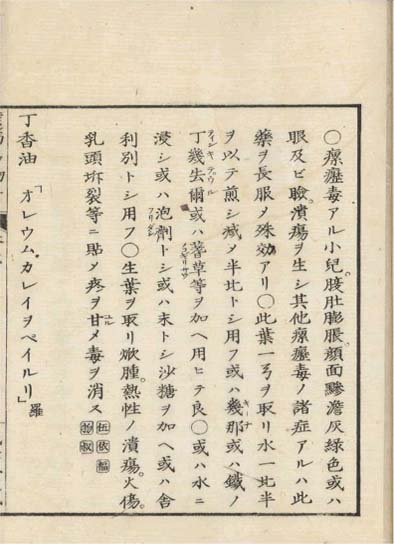 〇瘰癧毒アル小兒。腹肚膨脹。顔面黲澹灰緑色或ハ
眼及ビ瞼。潰瘍ヲ生シ其他瘰癧毒ノ諸症アルハ此
藥ヲ長服メ殊効アリ〇此葉一弓ヲ取リ水一比半
ヲ以テ煎シ減メ半比トシ用フ或ハ幾那或ハ鐵ノ
キーナ
丁幾失爾或ハ蓍草等ヲ加ヘ用ヒテ良〇或ハ水ニ
浸シ或ハ泡劑トシ或ハ末トシ沙糖ヲ加ヘ或ハ舎
フリダシ
利別トシ用フ〇生葉ヲ取リ焮腫。熱性ノ潰瘍。火傷。
乳頭坼裂等ニ貼メ疼ヲ甘メ毒ヲ消ス
ユル
丁香油「オレウム、カレイヲペイルリ」羅